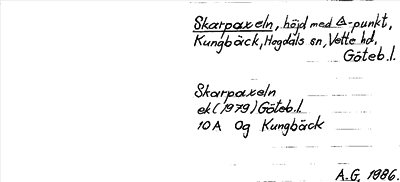 Skarpaxeln, höjd med △-punkt,
Kungbäck, Hogdals sn, Vette hd,
Göteb.l.
Skarpaxeln
ek (1979) Göteb.l.
10A 0g Kungbäck
A.G. 1986.